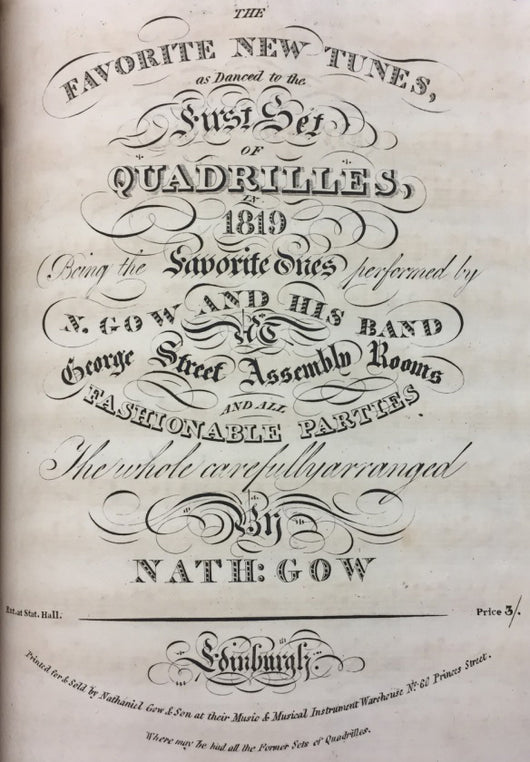 THE
FAVORITE NEW TUNES,
as Danced to the
First Set
OF
QUADRILLES,
IN
1819
(Being the Favorite Ones performed by
N. GOW AND HIS BAND
AT
George Street Assembly Rooms
AND ALL
FASHIONABLE PARTIES
The whole carefully arranged
By
NATH: GOW
Ent. at Stat. Hall.
Price 3/.
Edinburgh:
Printed for & Sold by Nathaniel Gow & Son at their Music & Musical Instrument Warehouse No. 60 Princes Street.
Where may be had all the Former Sets of Quadrilles.